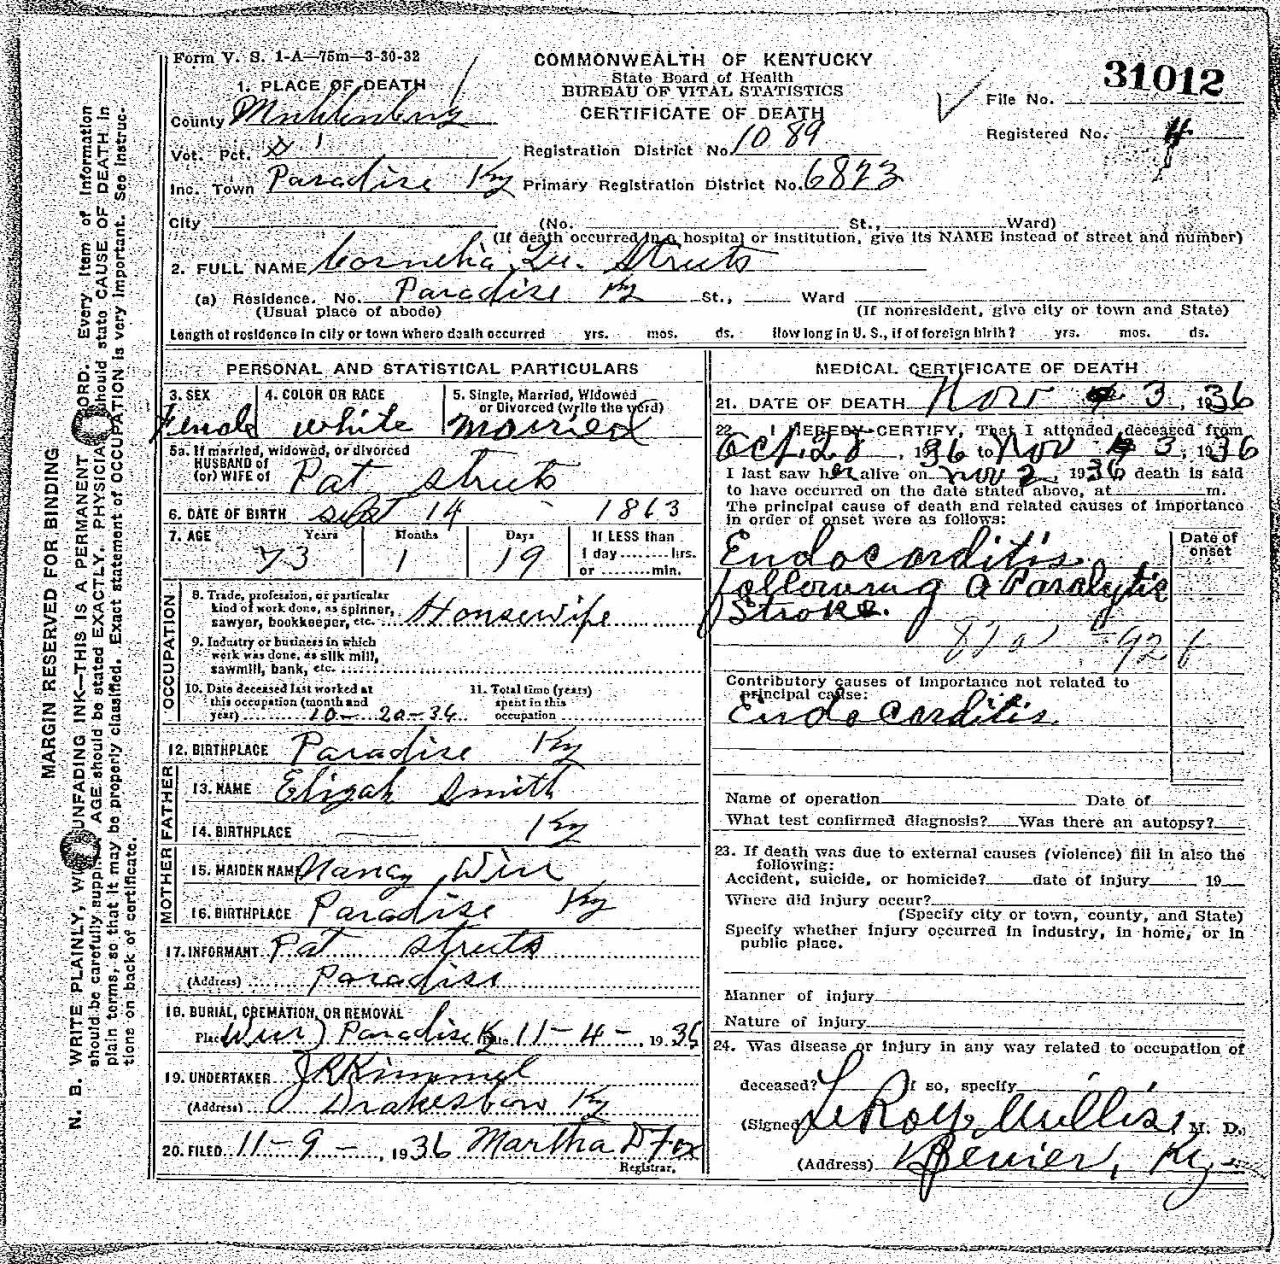 Form V. S. 1-A—75m—3-30-32
COMMONWEALTH OF KENTUCKY
State Board of Health
BUREAU OF VITAL STATISTICS
CERTIFICATE OF DEATH
31012
File No.
Registered No. 4
1. PLACE OF DEATH
County Muhlenberg
Vot. Pct.
Registration District No. 1089
Inc. Town Paradise Ky Primary Registration District No. 6823
City (No. St., Ward)
(If death occurred in a hospital or institution, give its NAME instead of street and number)
2. FULL NAME Cornelia Lee. Struts
(a) Residence. No. Paradise Ky St., Ward
(Usual place of abode) (If nonresident, give city or town and State)
Length of residence in city or town where death occurred yrs. mos. ds. How long in U. S., if of foreign birth? yrs. mos. ds.
PERSONAL AND STATISTICAL PARTICULARS
3. SEX 4. COLOR OR RACE 5. Single, Married, Widowed
or Divorced (write the word)
Female white Married
5a. If married, widowed, or divorced
HUSBAND of
(or) WIFE of Pat Struts
6. DATE OF BIRTH Sept 14 1863
7. AGE Years Months Days If LESS than
73 1 19 1 day hrs.
or min.
OCCUPATION
8. Trade, profession, or particular
kind of work done, as spinner,
sawyer, bookkeeper, etc. Housewife
9. Industry or business in which
work was done, as silk mill,
sawmill, bank, etc.
10. Date deceased last worked at 11. Total time (years)
this occupation (month and spent in this
year) 10-20-36 occupation
12. BIRTHPLACE Paradise Ky
FATHER
13. NAME Elizah Smith
14. BIRTHPLACE Ky
MOTHER
15. MAIDEN NAME Nancy Wir
16. BIRTHPLACE Paradise Ky
17. INFORMANT Pat Struts
(Address) Paradise
18. BURIAL, CREMATION, OR REMOVAL
Place Paradise Ky Date 11-4-, 1936
19. UNDERTAKER J R Kimmel
(Address) Drakesboro Ky
20. FILED 11-9-, 1936 Martha D Fox
Registrar.
MEDICAL CERTIFICATE OF DEATH
21. DATE OF DEATH Nov 3, 1936
22. I HEREBY CERTIFY, That I attended deceased from
Oct. 28, 1936 to Nov 3, 1936
I last saw her alive on Nov 2 1936 death is said
to have occurred on the date stated above, at m.
The principal cause of death and related causes of importance
in order of onset were as follows:
Date of
onset
Endocarditis
following a Paralytic
Stroke.
Contributory causes of importance not related to
principal cause:
Endocarditis
Name of operation Date of
What test confirmed diagnosis? Was there an autopsy?
23. If death was due to external causes (violence) fill in also the
following:
Accident, suicide, or homicide? date of injury 19
Where did injury occur?
(Specify city or town, county, and State)
Specify whether injury occurred in industry, in home, or in
public place.
Manner of injury
Nature of injury
24. Was disease or injury in any way related to occupation of
deceased? If so, specify
(Signed) LeRoy Willis, M. D.
(Address) Bevier, Ky.
MARGIN RESERVED FOR BINDING
N. B. WRITE PLAINLY, UNFADING INK—THIS IS A PERMANENT Every item of information
should be carefully AGE should be stated EXACTLY. PHYSICIAN should state CAUSE OF DEATH in
plain terms, so that it may be properly classified. Exact statement of OCCUPATION is very important. See instruc-
tions on back of certificate.